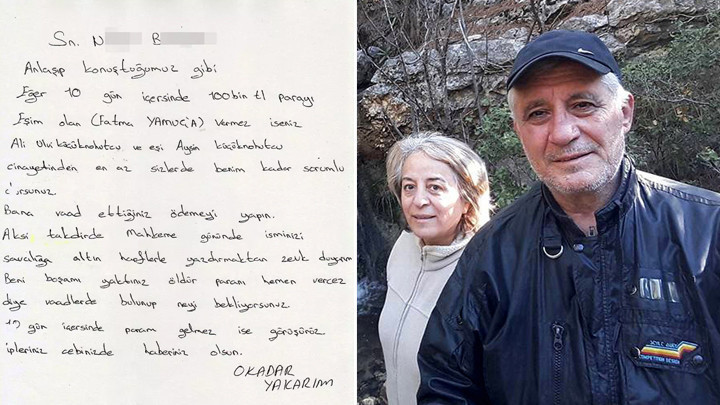 Sn. N B
Anlaşıp konuştuğumuz gibi
Eğer 10 gün içersinde 100bin tl parayı
Eşim olan (Fatma YAMUÇ'A) vermez iseniz
Ali Ulvi küçüknohutcu ve eşi Aysin küçüknohutcu
cinayetinden en az sizlerde benim kadar sorumlu
olursunuz
Bana vaad ettiğiniz ödemeyi yapın.
Aksi takdirde Mahkeme gününde isminizi
savcılığa altın harflerle yazdırmaktan zevk duyarım
Beni boşamı yaktınız öldür paranı hemen vercez
diye vaadlerde bulunup neyi bekliyorsunuz
10 gün içersinde param gelmez ise görüşürüz
ipleriniz cebinizde haberiniz olsun.
OKADAR
YAKARIM
COMPETITION DESIGN